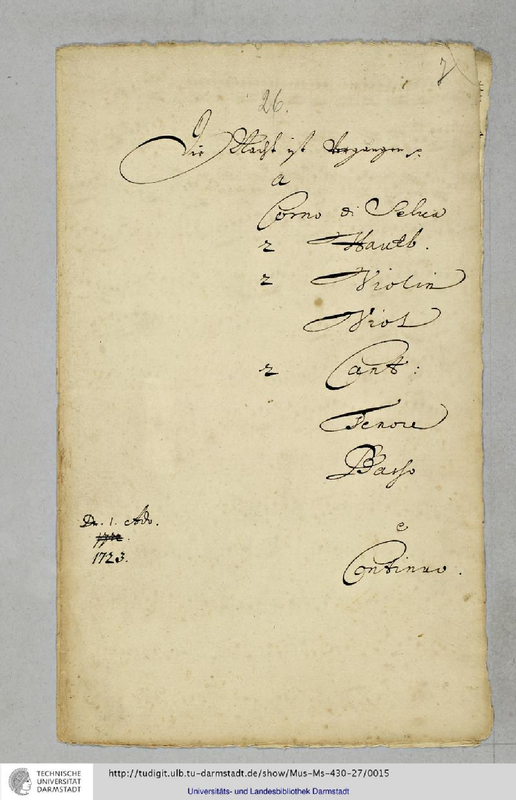 7
26.
Die Nacht ist Vergangen
a
Corno di Selva
2 Hautb.
2 Violin
Viol
2 Cant:
Tenore
Basso
e
Continuo.
Dn. 1. Adv.
1723.
TECHNISCHE
UNIVERSITÄT
DARMSTADT
http://tudigit.ulb.tu-darmstadt.de/show/Mus-Ms-430-27/0015
Universitäts- und Landesbibliothek Darmstadt